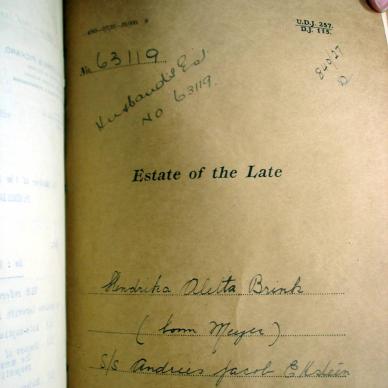 U.D.J. 257.
D.J. 115.
No 63119
Husband's Est
No 63119.
Estate of the Late
Hendrika Aletta Brink
(born Meyer)
S/S Andries Jacob Eksteen